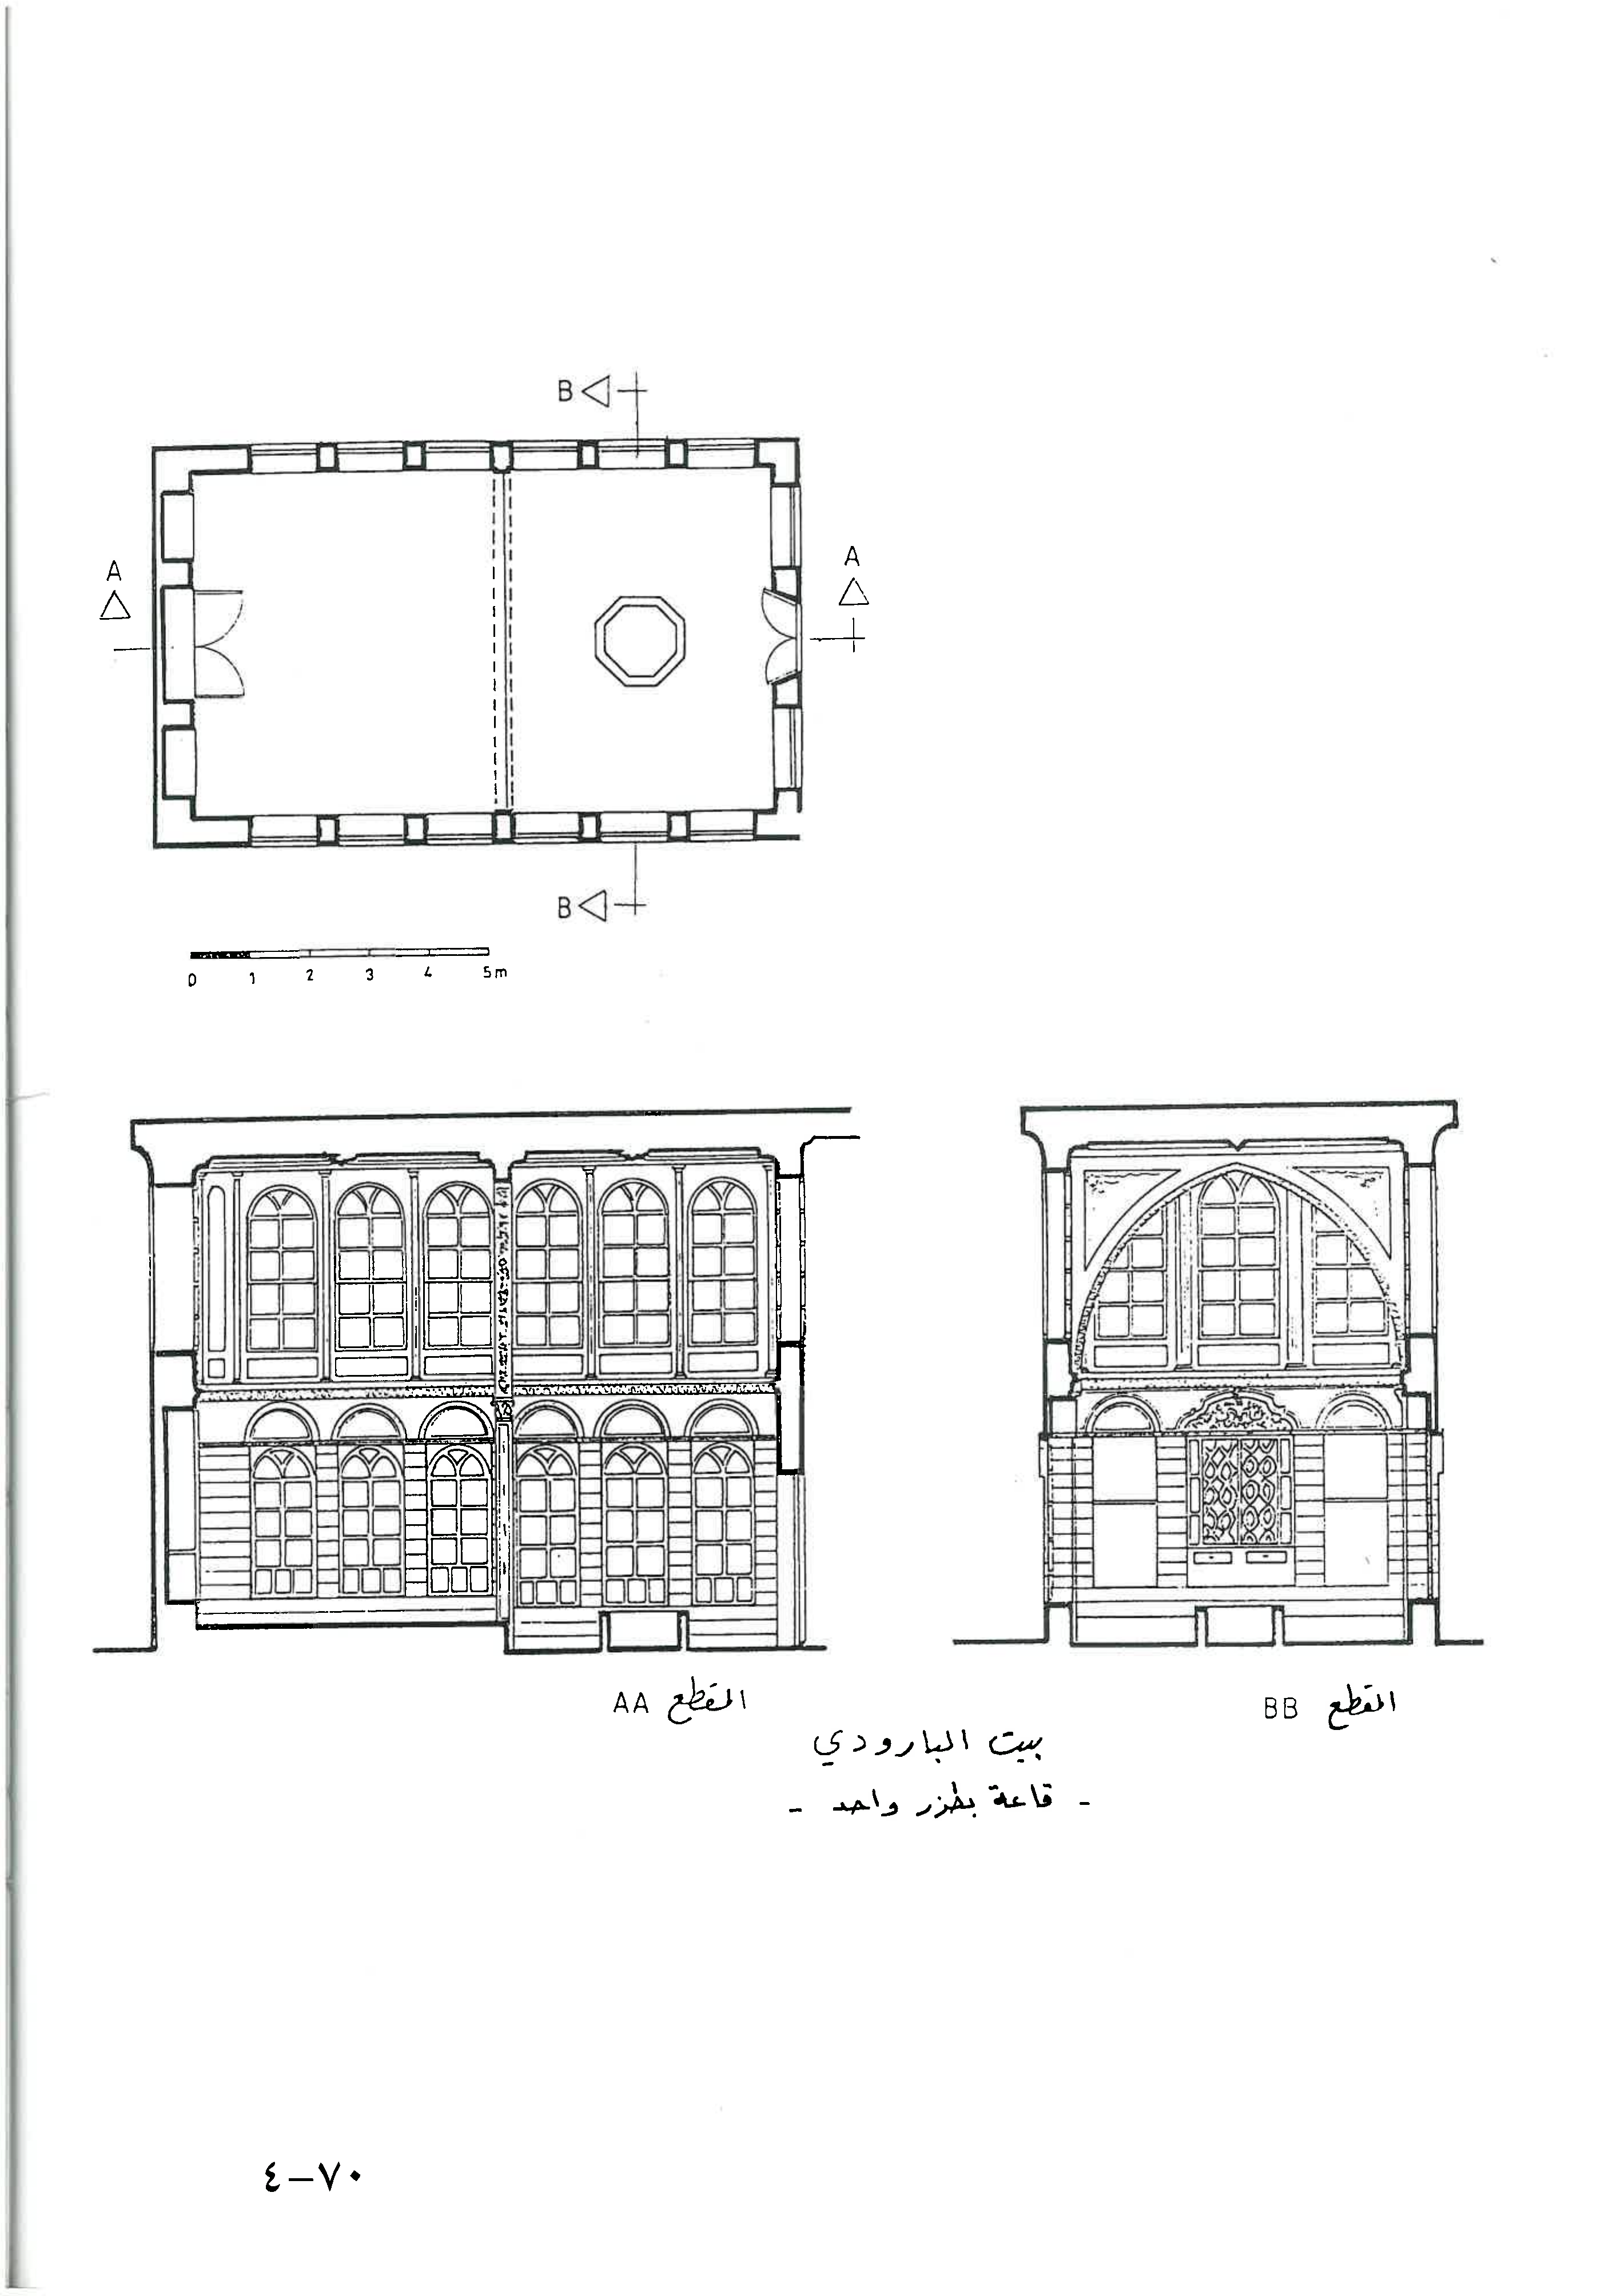 B
A
A
B
0 1 2 3 4 5m
المقطع AA
المقطع BB
بيت البارودي
- قاعة بطزر واحد -
٤-٧٠